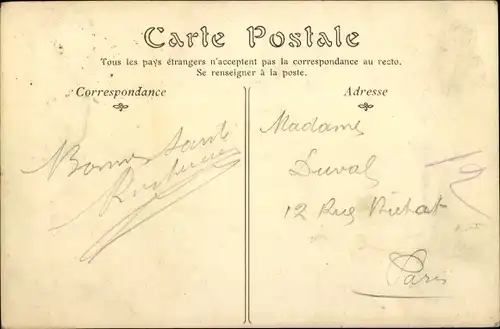 Carte Postale
Tous les pays étrangers n'acceptent pas la correspondance au recto.
Se renseigner à la poste.
Correspondance
Bonne santé
Adresse
Madame
Duval
12 Rue Bichat
Paris